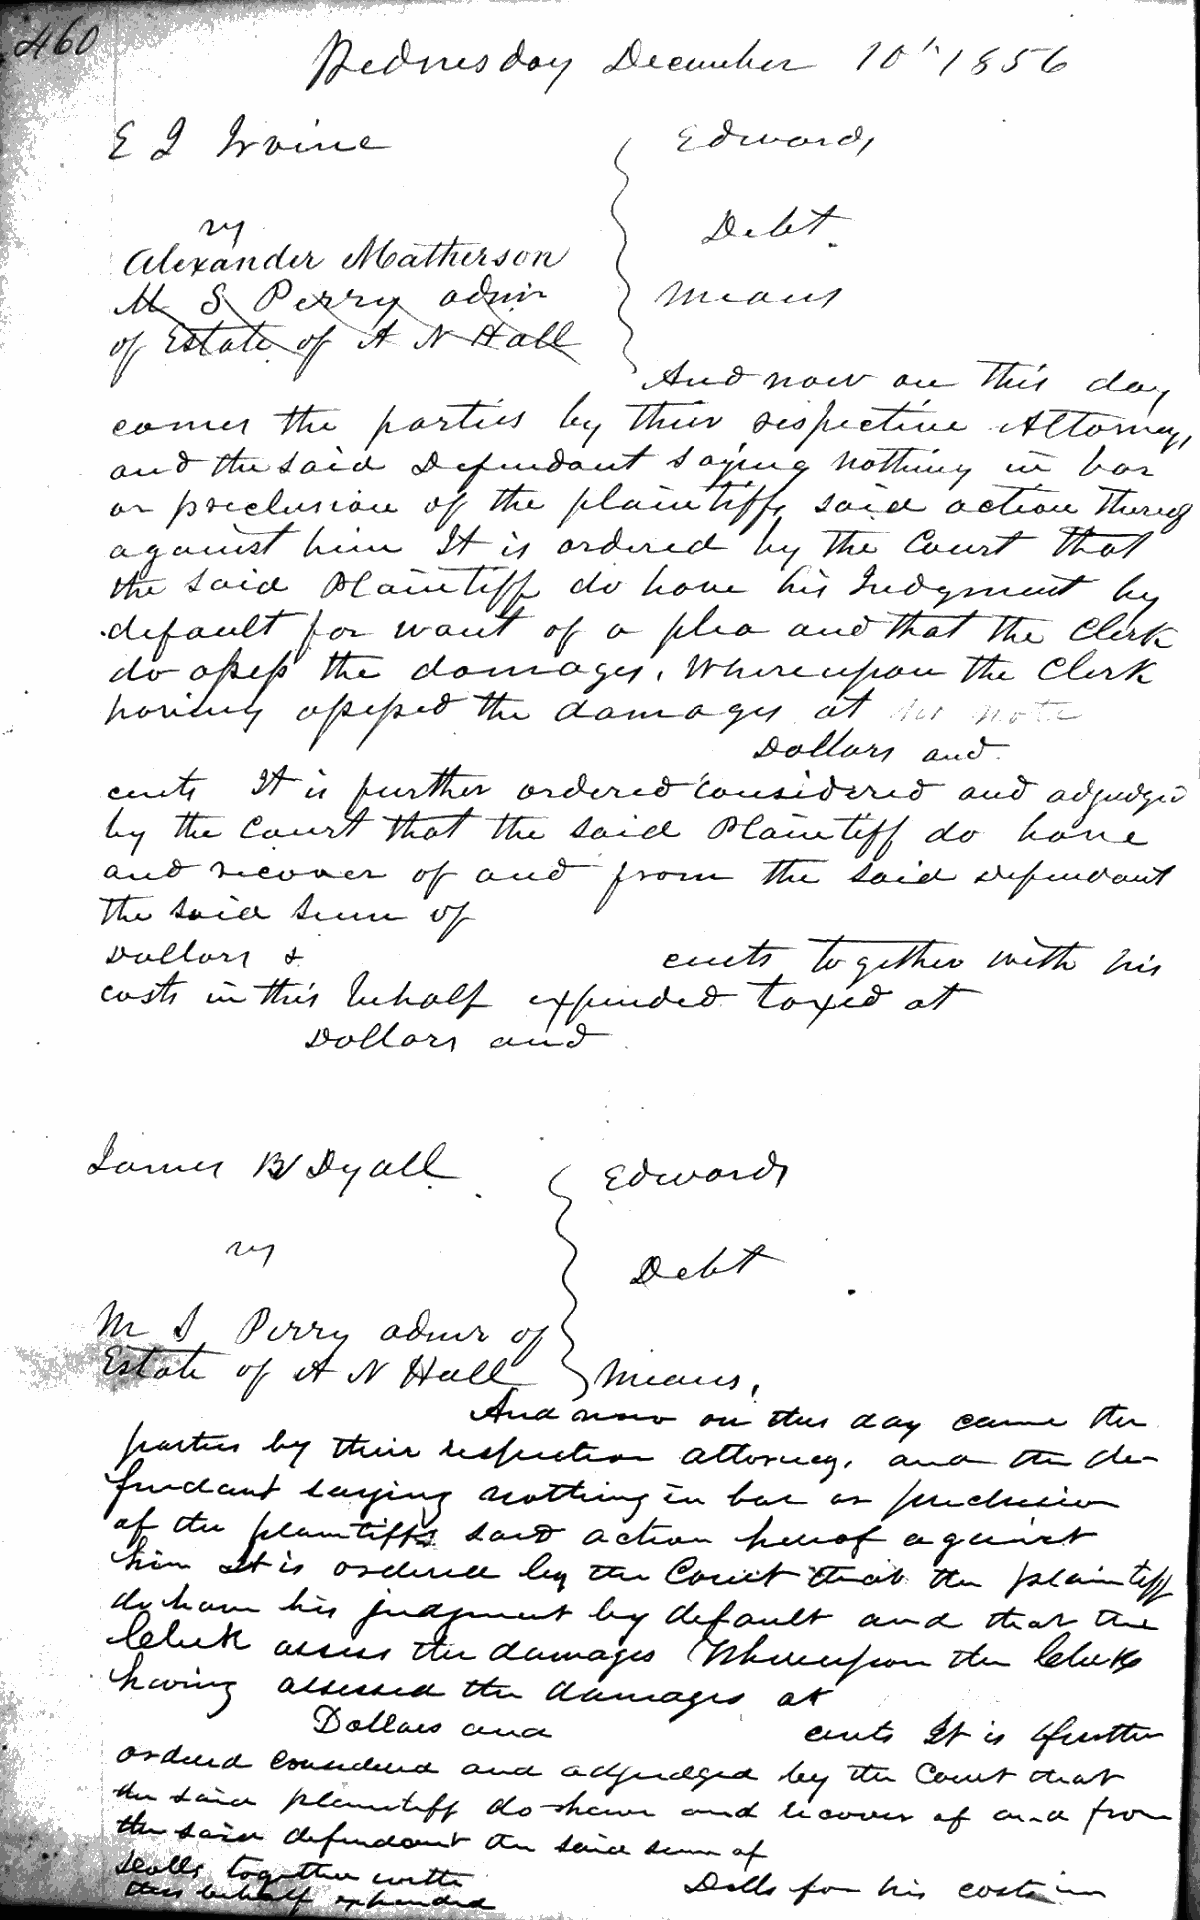 460
Wednesday December 10th 1856
E I Irvine
Edwards
vs
Debt.
Alexander Matherson
M S Perry admr
Means
of Estate of A N Hall
And now on this day
comes the parties by their respective Attorneys,
and the said Defendant saying nothing in bar
or preclusion of the plaintiffs said action thereof
against him It is ordered by the Court that
the said Plaintiff do have his Judgment by
default for want of a plea and that the Clerk
do assess the damages. Whereupon the Clerk
having assessed the damages at no note
Dollars and
cents It is further ordered considered and adjudged
by the Court that the said Plaintiff do have
and recover of and from the said defendant
the said sum of
Dollars & cents together with his
costs in this behalf expended taxed at
Dollars and
James B Dyall
Edwards
vs
Debt
M S Perry admr of
Estate of A N Hall
Means,
And now on this day came the
parties by their respective attorneys, and the de-
fendant saying nothing in bar or preclusion
of the plaintiffs said action hereof against
him It is ordered by the Court that the plaintiff
do have his judgment by default and that the
Clerk assess the damages Whereupon the Clerk
having assessed the damages at
Dollars and cents It is further
ordered considered and adjudged by the Court that
the said plaintiff do have and recover of and from
the said defendant the said sum of
Dolls together with Dolls for his costs in
this behalf expended